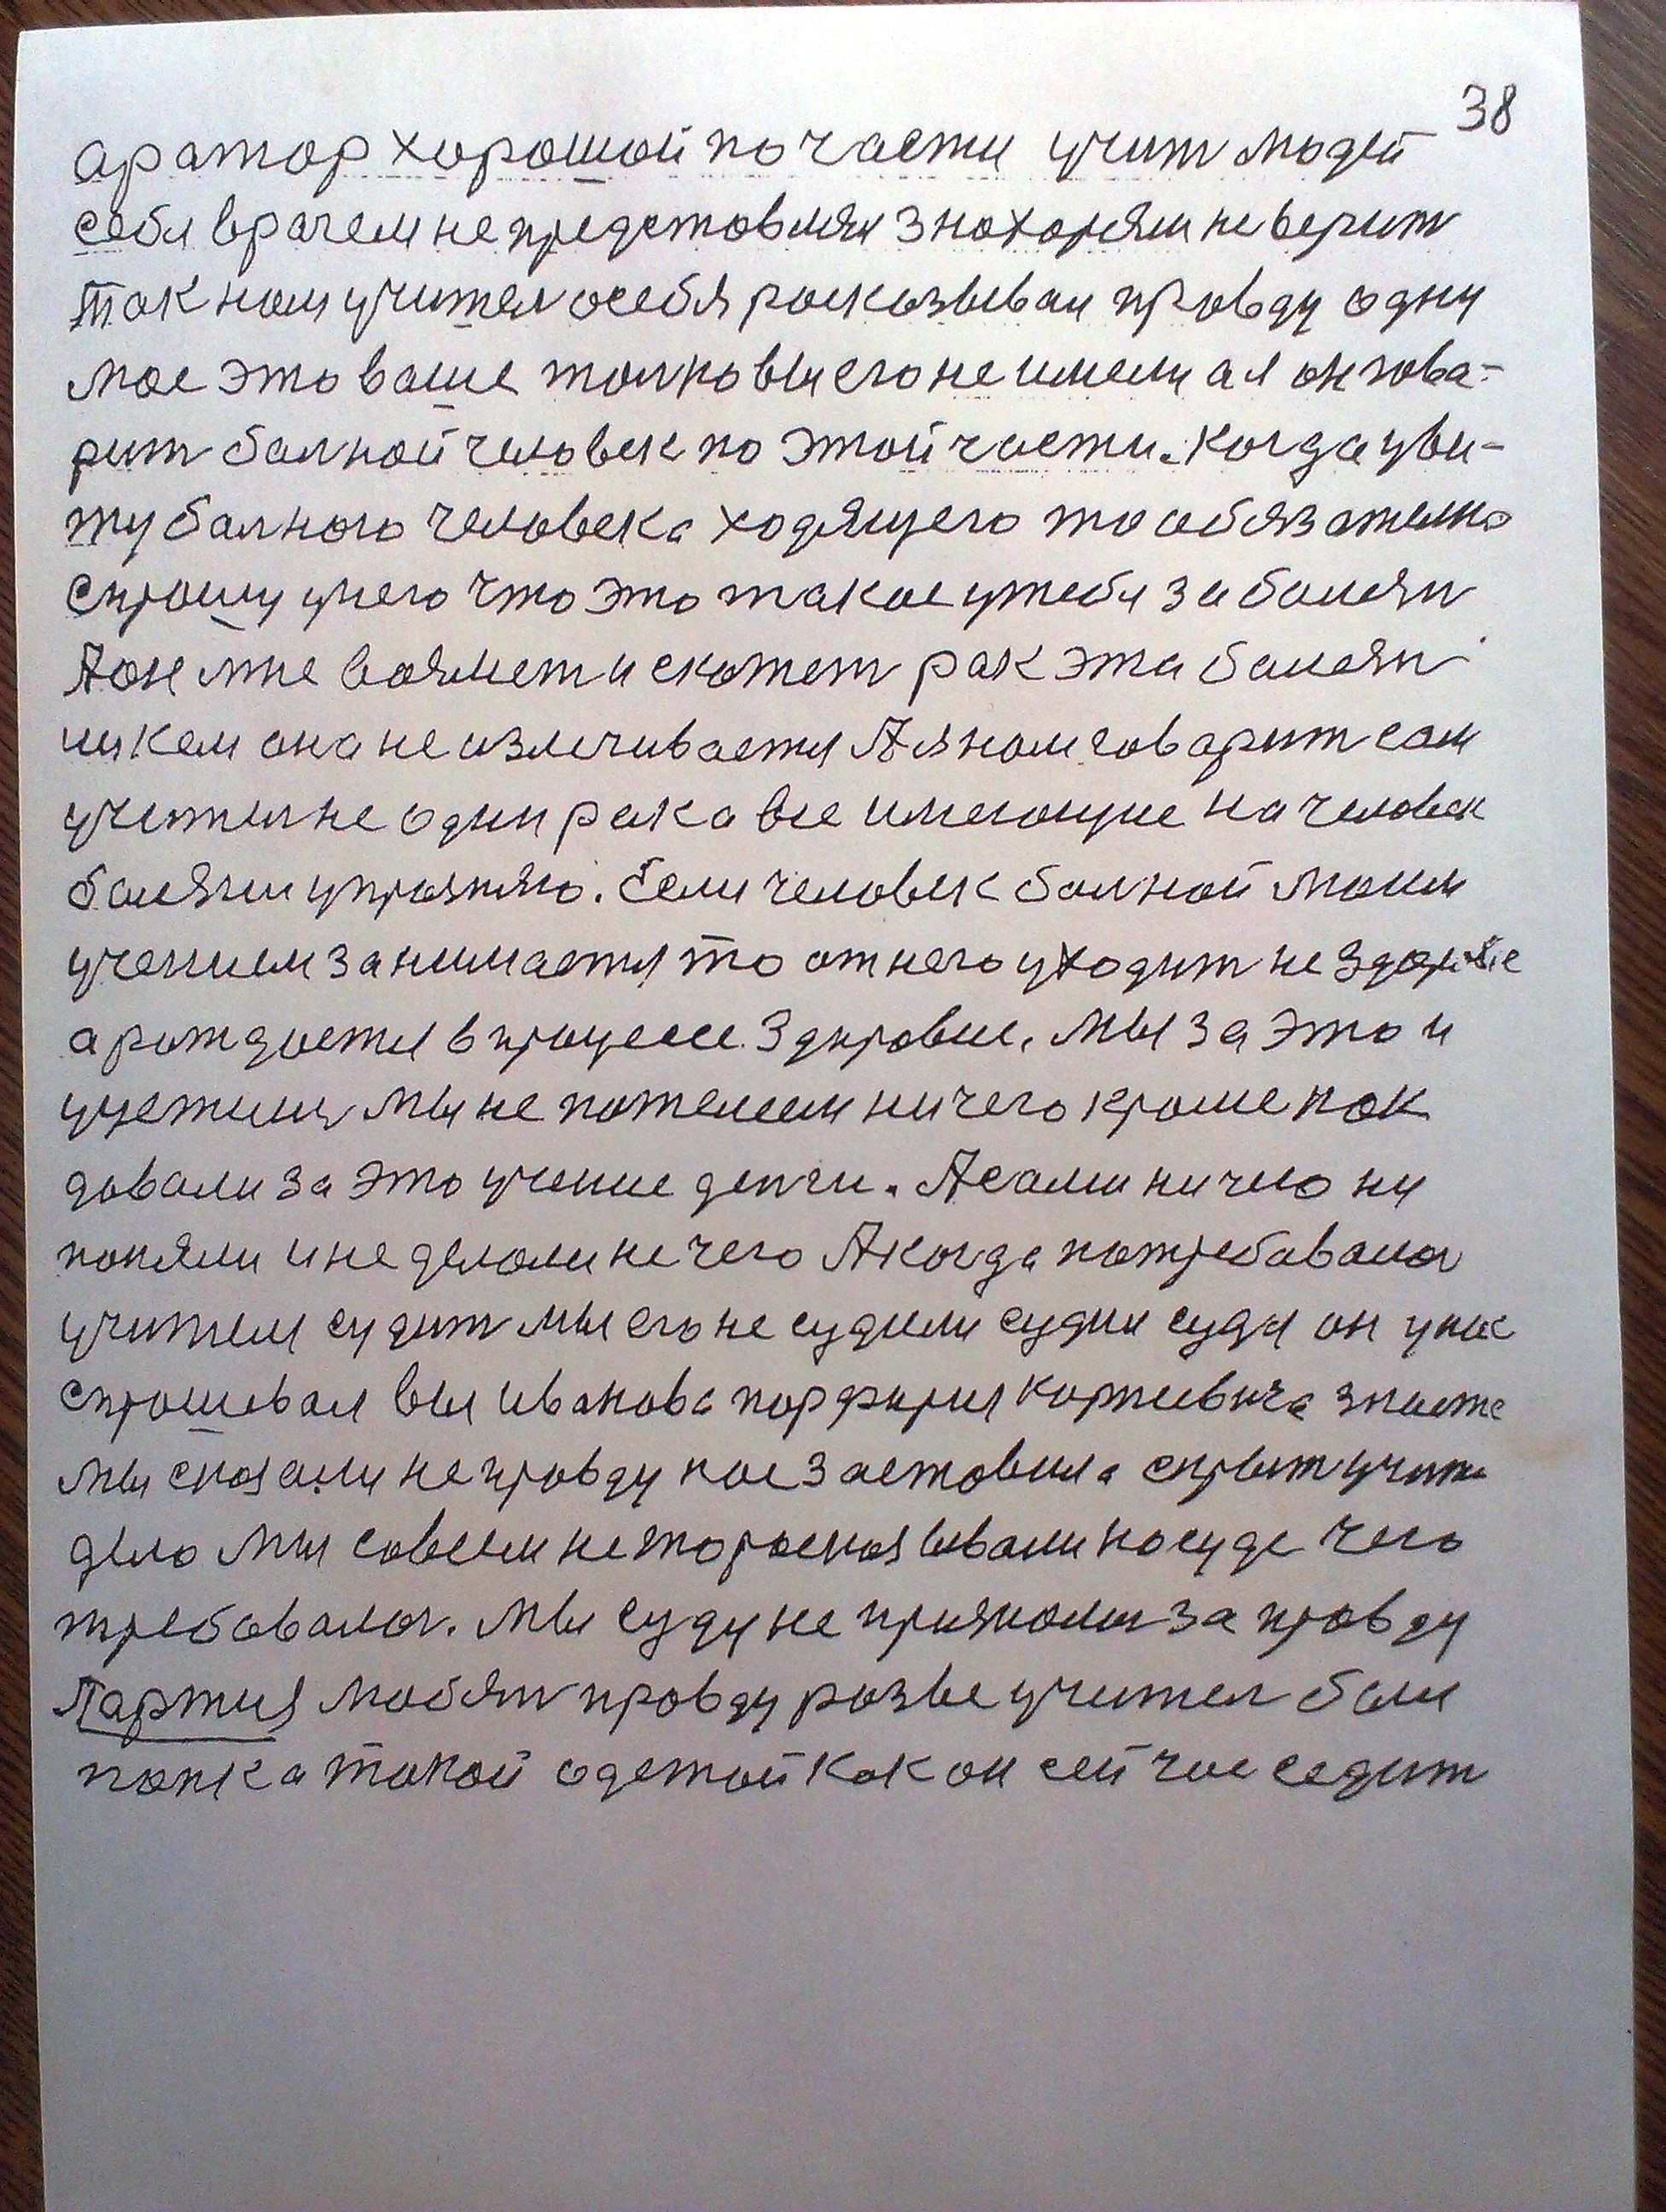 38
аратор хорошой по части учит людей
себя врачем не представлял знахорям не верит
так нам учител о себя расказывал правду одну
мое это ваше толко вы его не имели а я он гова-
рит балной человек по этой части. когда уви-
жу балного человека ходящего то обязателно
спрошу унего что это такое у тебя за болезн
А он мне возмет и скажет рак эта болезн
ни кем она не излечивается А я нам говорит сам
учител не один рак а все имеющие на человек
болезни упрозняю. Если человек балной моим
учением занимается то от него уходит не здоровие
а рождается в процессе здоровие. Мы за это и
Мы не пожелеем ничего кроме как
давали за это учение денги. А сами ничего ни
поняли и не делали не чего А когда потребавалос
учителя судит мы его не судили судил судя он унас
спрошевал вы Иванова порфирия корнеевича знаете
мы сказали не правду нас заставила скрыт
дело мы совсем не то расказывали на суде чего
требавалос. Мы суду не признали за правду
Партия любит правду разве учител был
такой одетой как он сейчас седит